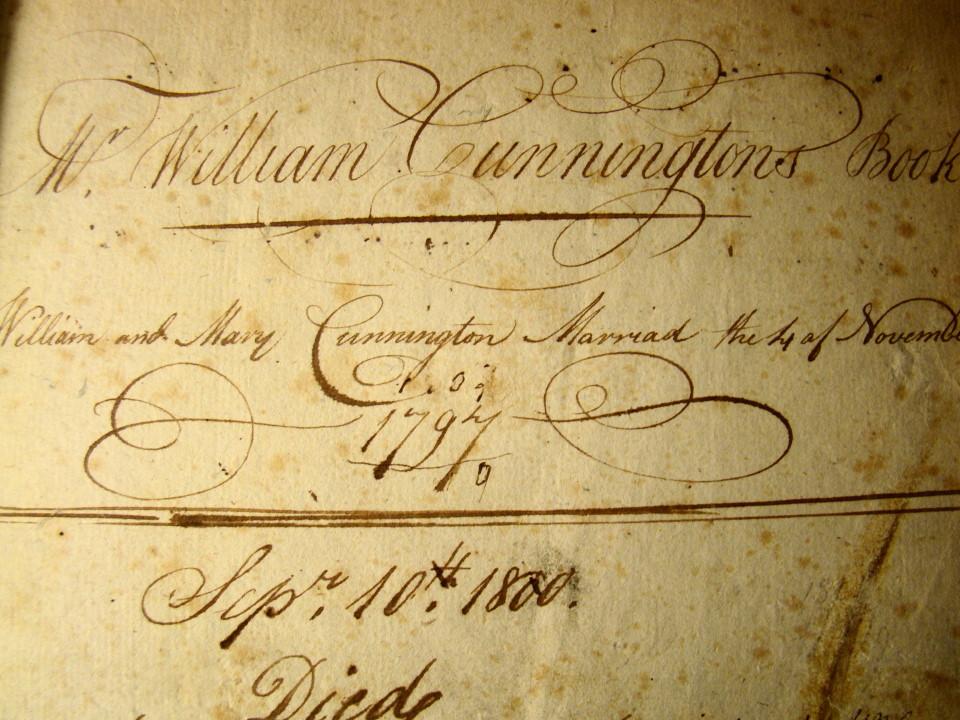 Mr. William Cunningtons Book
William and Mary Cunnington Marriad the 4 of Novembe
1794
Sepr. 10th. 1800.
Died